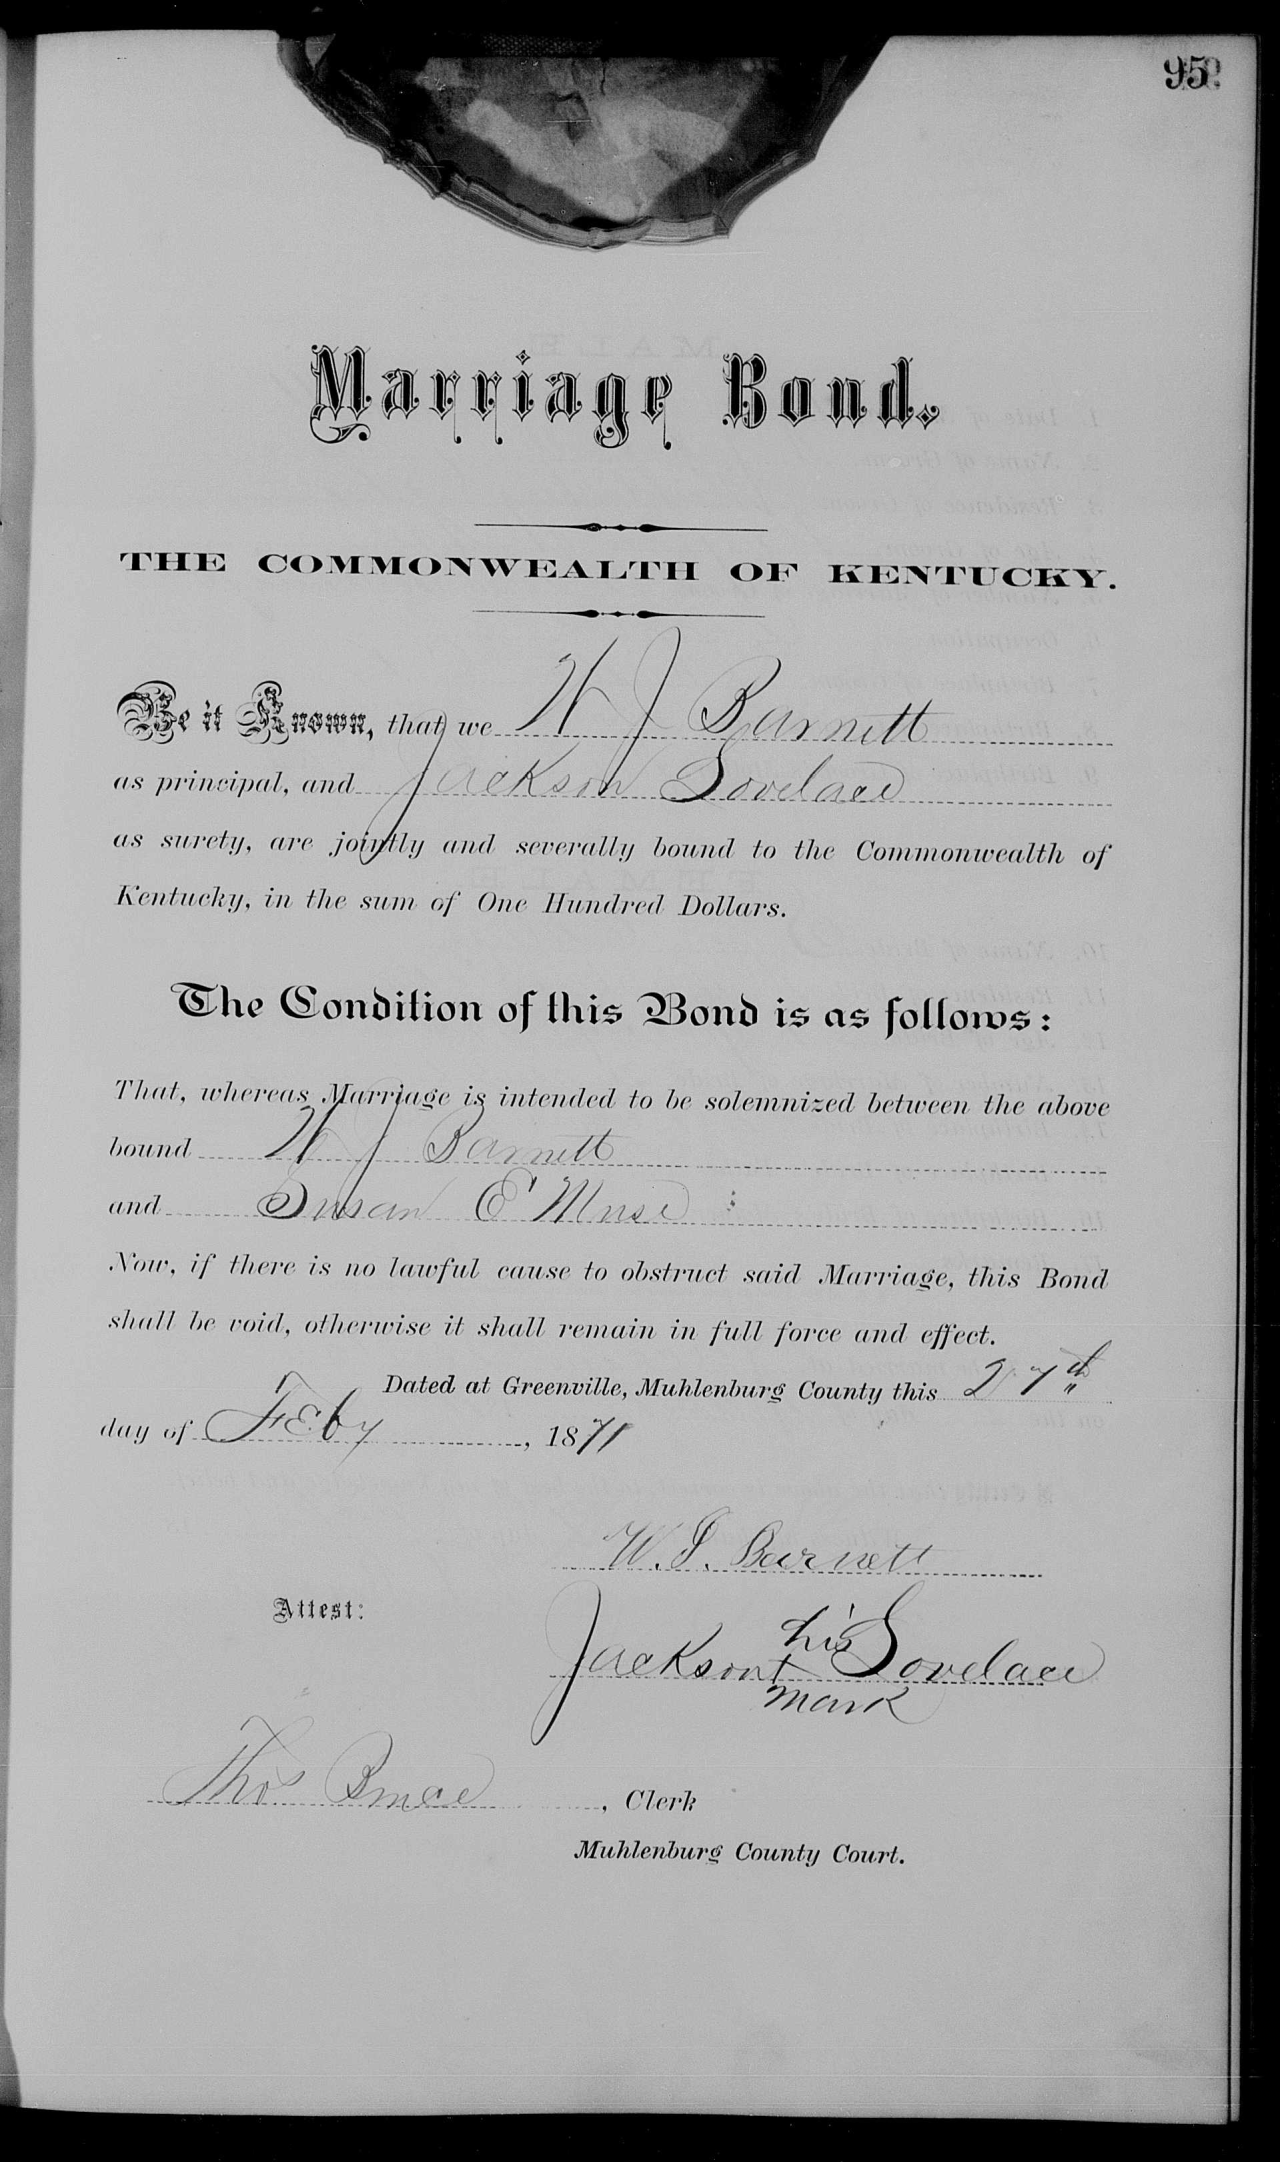 95
Marriage Bond.
THE COMMONWEALTH OF KENTUCKY.
Be it Known, that we W J Barnett
as principal, and Jackson Lovelace
as surety, are jointly and severally bound to the Commonwealth of
Kentucky, in the sum of One Hundred Dollars.
The Condition of this Bond is as follows:
That, whereas Marriage is intended to be solemnized between the above
bound W J Barnett
and Susan E Muse
Now, if there is no lawful cause to obstruct said Marriage, this Bond
shall be void, otherwise it shall remain in full force and effect.
Dated at Greenville, Muhlenburg County this 27th
day of Feby, 1871
W. J. Barnett
Attest:
his
Jackson + Lovelace
mark
Thos Bruce, Clerk
Muhlenburg County Court.